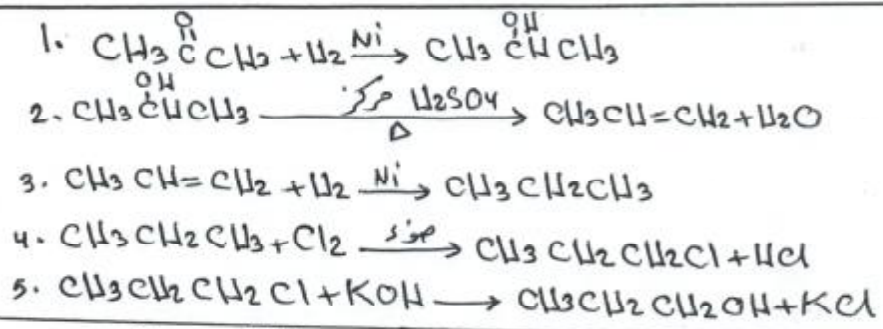 O
1. CH3 C CH3 + H2 Ni → CH3 CH CH3
OH
OH
2. CH3 CH CH3 مركز H2SO4 → CH3CH=CH2+H2O
Δ
3. CH3 CH=CH2 + H2 Ni → CH3CH2CH3
4. CH3CH2CH3+Cl2 ضوء → CH3 CH2 CH2Cl+HCl
5. CH3CH2CH2Cl+KOH → CH3CH2CH2OH+KCl